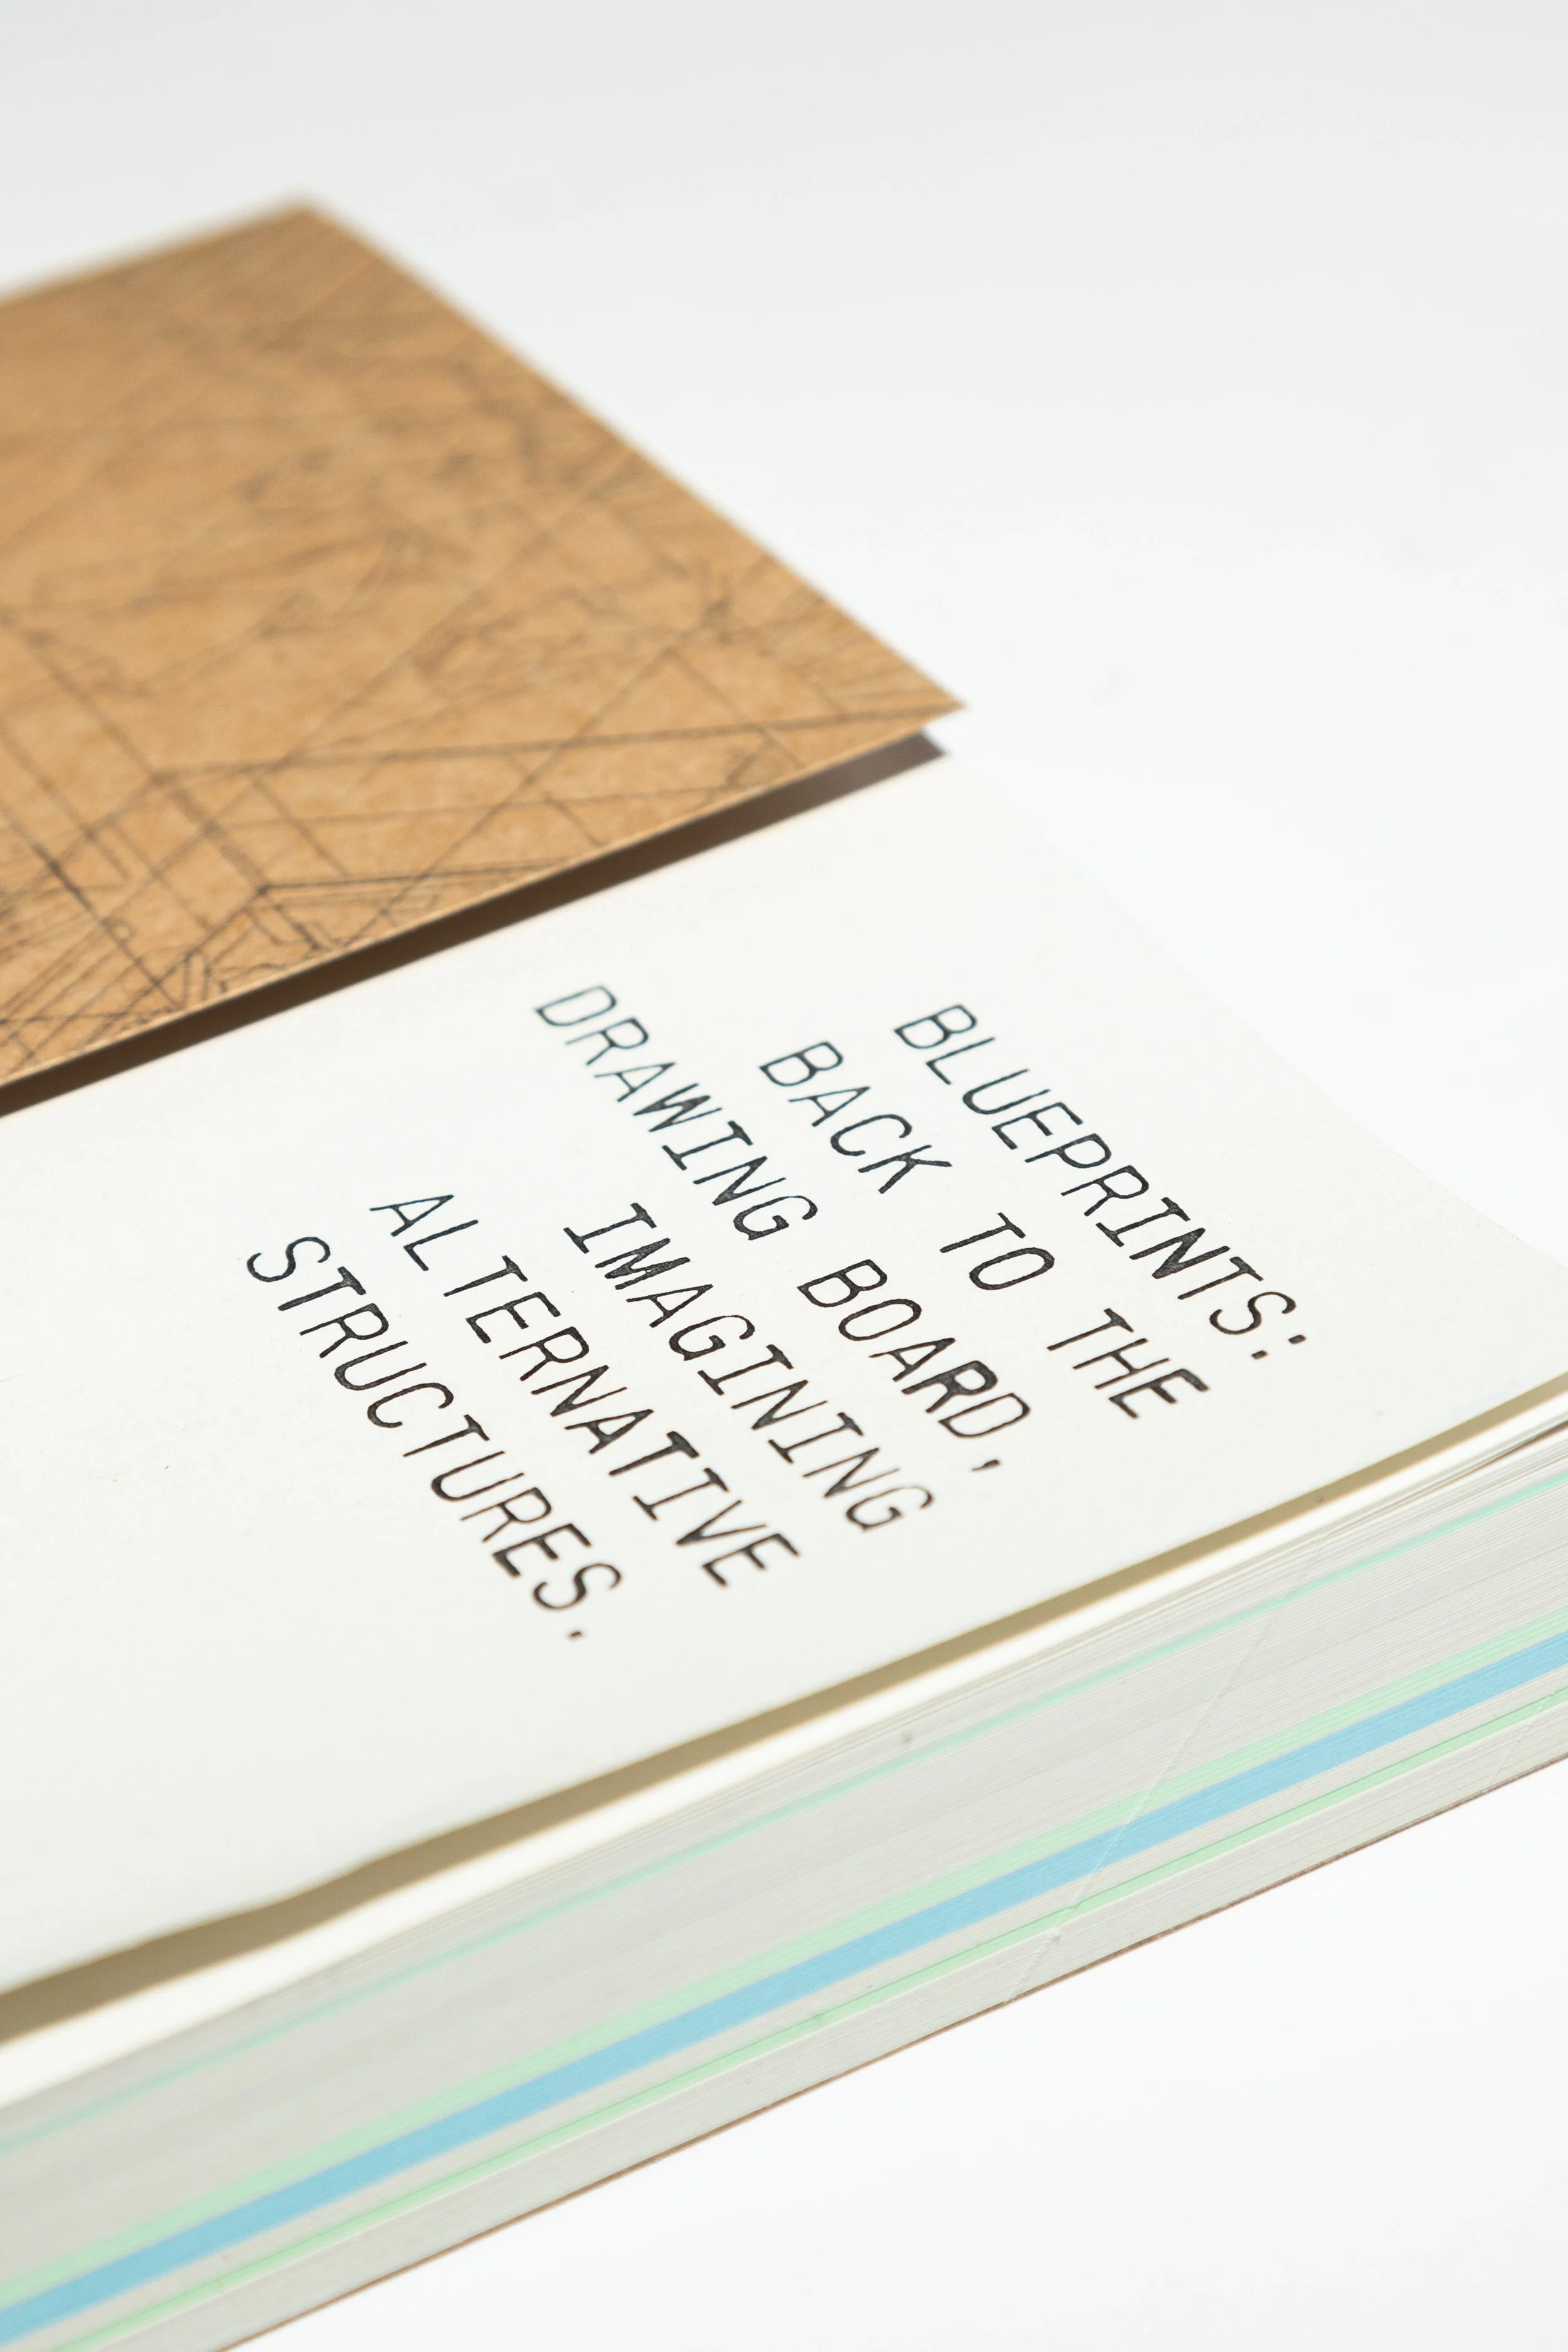 BLUEPRINTS:
BACK TO THE
DRAWING BOARD,
IMAGINING
ALTERNATIVE
STRUCTURES.